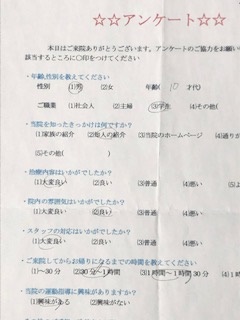 ☆☆アンケート☆☆
本日はご来院ありがとうございます。アンケートのご協力をお願い
該当するところに○印をつけてください
・年齢,性別を教えてください
性別 (1)男 (2)女 年齢( 10 才代)
ご職業 (1)社会人 (2)主婦 (3)学生 (4)その他(
・当院を知ったきっかけは何ですか?
(1)家族の紹介 (2)知人の紹介 (3)当院のホームページ (4)通り
(5)その他( )
・治療内容はいかがでしたか?
(1)大変良い (2)良い (3)普通 (4)悪い
・院内の雰囲気はいかがでしたか?
(1)大変良い (2)良い (3)普通 (4)悪い
・スタッフの対応はいかがでしたか?
(1)大変良い (2)良い (3)普通 (4)悪い
・ご来院してからお帰りになるまでの時間を教えてください
(1)~30分 (2)30分~1時間 (3)1時間~1時間30分 (4)1
・当院の運動指導に興味がありますか?
(1)興味がある (2)興味がない